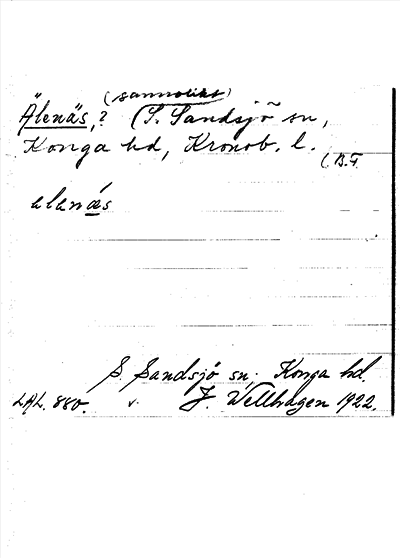 (sannolikt)
Älenäs,? (S. Sandsjö sn,
Konga hd, Kronob. l.
(B.F
elenæs
S. Sandsjö sn. Konga hd.
LAL. 880. v. J. Wellhagen 1922.